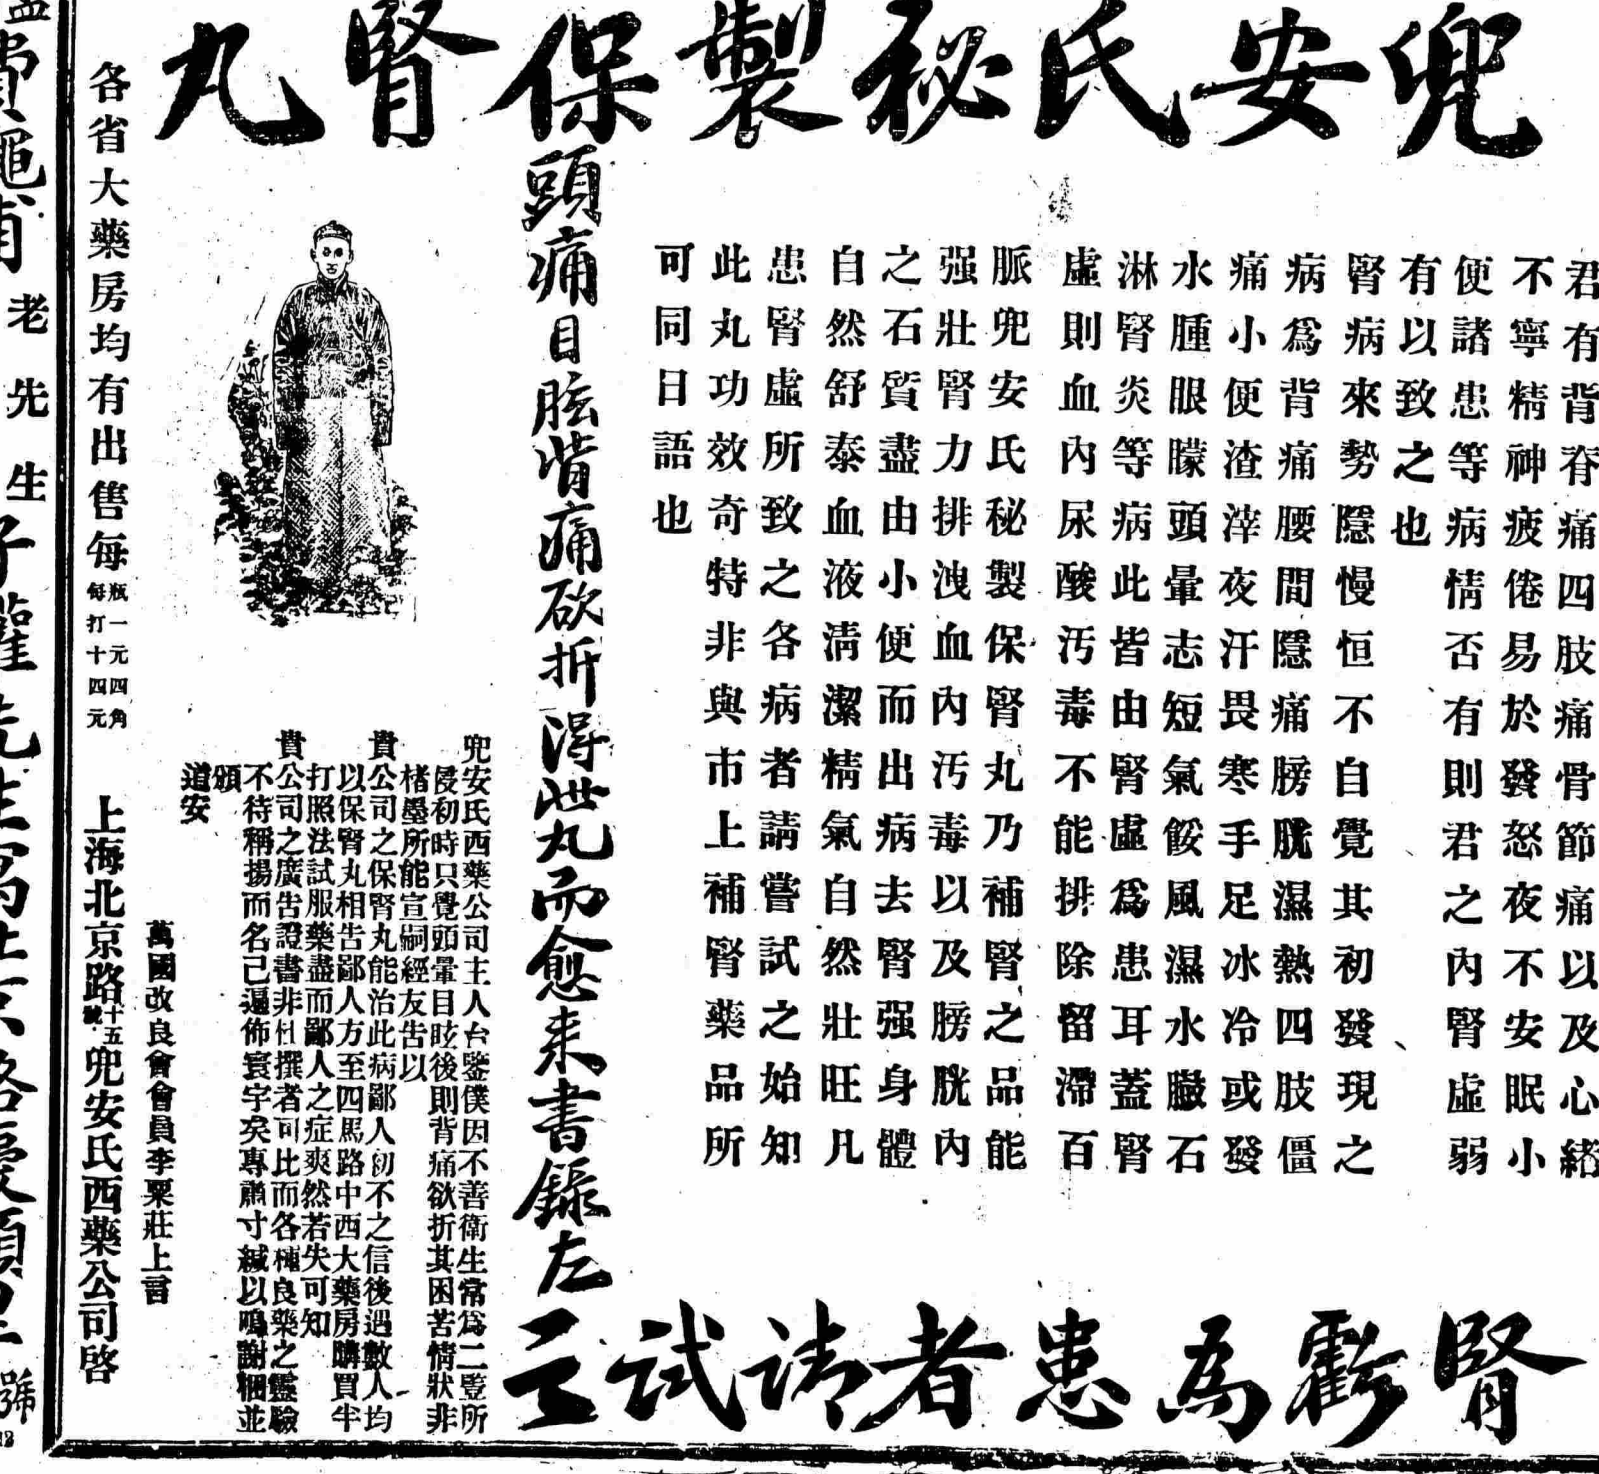 兜安氏秘製保腎丸
君有背脊痛四肢痛骨節痛以及心緒
不寧精神疲倦易於發怒夜不安眠小
便諸患等病情否有則君之內腎虛弱
有以致之也
腎病來勢隱慢恒不自覺其初發現之
病爲背痛腰間隱痛膀胱濕熱四肢僵
痛小便渣滓夜汗畏寒手足冰冷或發
水腫眼朦頭暈志短氣餒風濕水臌石
淋腎炎等病此皆由腎虛爲患耳蓋腎
虛則血內尿酸汚毒不能排除留滯百
脈兜安氏秘製保腎丸乃補腎之品能
强壯腎力排洩血內汚毒以及膀胱內
之石質盡由小便而出病去腎强身體
自然舒泰血液淸潔精氣自然壯旺凡
患腎虛所致之各病者請嘗試之始知
此丸功效奇特非與市上補腎藥品所
可同日語也
頭痛目眩背痛欲折得此丸而愈來書錄左
兜安氏西藥公司主人台鑒僕因不善衛生常爲二豎所
侵初時只覺頭暈目眩後則背痛欲折其困苦情狀非
楮墨所能宣嗣經友告以
貴公司之保腎丸能治此病鄙人初不之信後遇數人均
以保腎丸相告鄙人方至四馬路中西大藥房購買半
打照法試服藥盡而鄙人之症爽然若失可知
貴公司之廣告證書非杜撰者可比而各種良藥之靈驗
不待稱揚而名已遍佈寰宇矣專肅寸緘以鳴謝悃並
頌
道安
萬國改良會會員李栗莊上言
上海北京路十五號兜安氏西藥公司啓
各省大藥房均有出售每瓶一元四角每打十四元
腎虧爲患者請試之
老先生
號